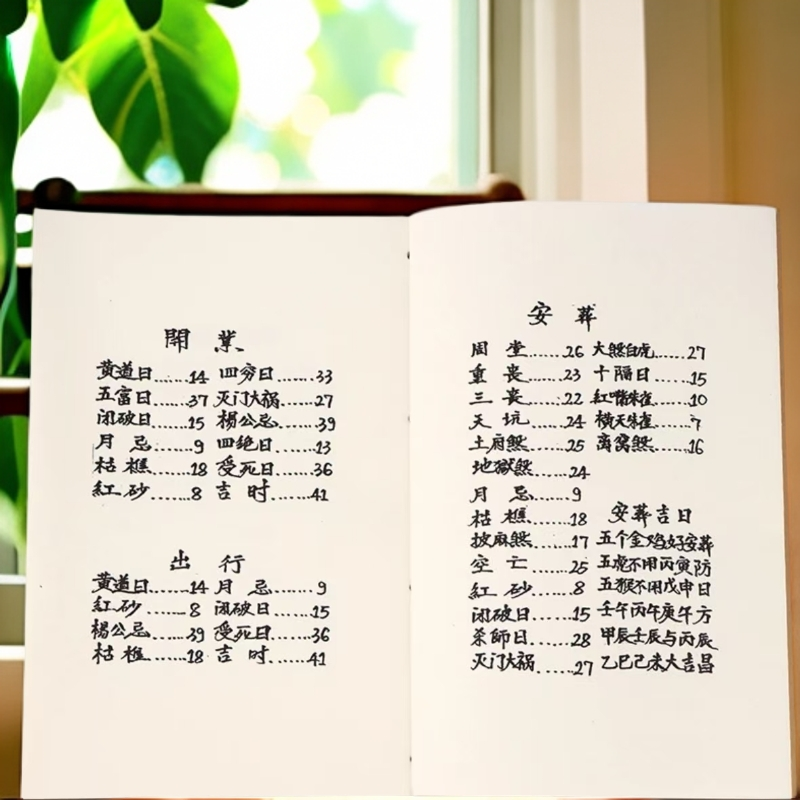 開 業
黄道日......14 四穷日.......33
五富日......37 灭门大祸......27
闭破日......15 楊公忌......39
月 忌......9 四绝日......13
枯樵......18 受死日......36
紅砂......8 吉 时......41
出 行
黄道日......14 月 忌......9
紅砂......8 闭破日......15
楊公忌......39 受死日......36
枯樵......18 吉 时......41
安 葬
周 堂......26 大煞白虎......27
重 丧......23 十隔日......15
三 丧......22 紅嘴朱雀......10
天 坑......24 横天朱雀......7
土府煞......25 离窝煞......16
地獄煞......24
月 忌......9
枯樵......18
披麻煞......17
空 亡......25
紅 砂......8
闭破日......15
杀師日......28
灭门大祸......27
安葬吉日
五个金鸡好安葬
五虎不用丙寅防
五猴不用戊申日
壬午丙午庚午方
甲辰壬辰与丙辰
乙巳己未大吉昌